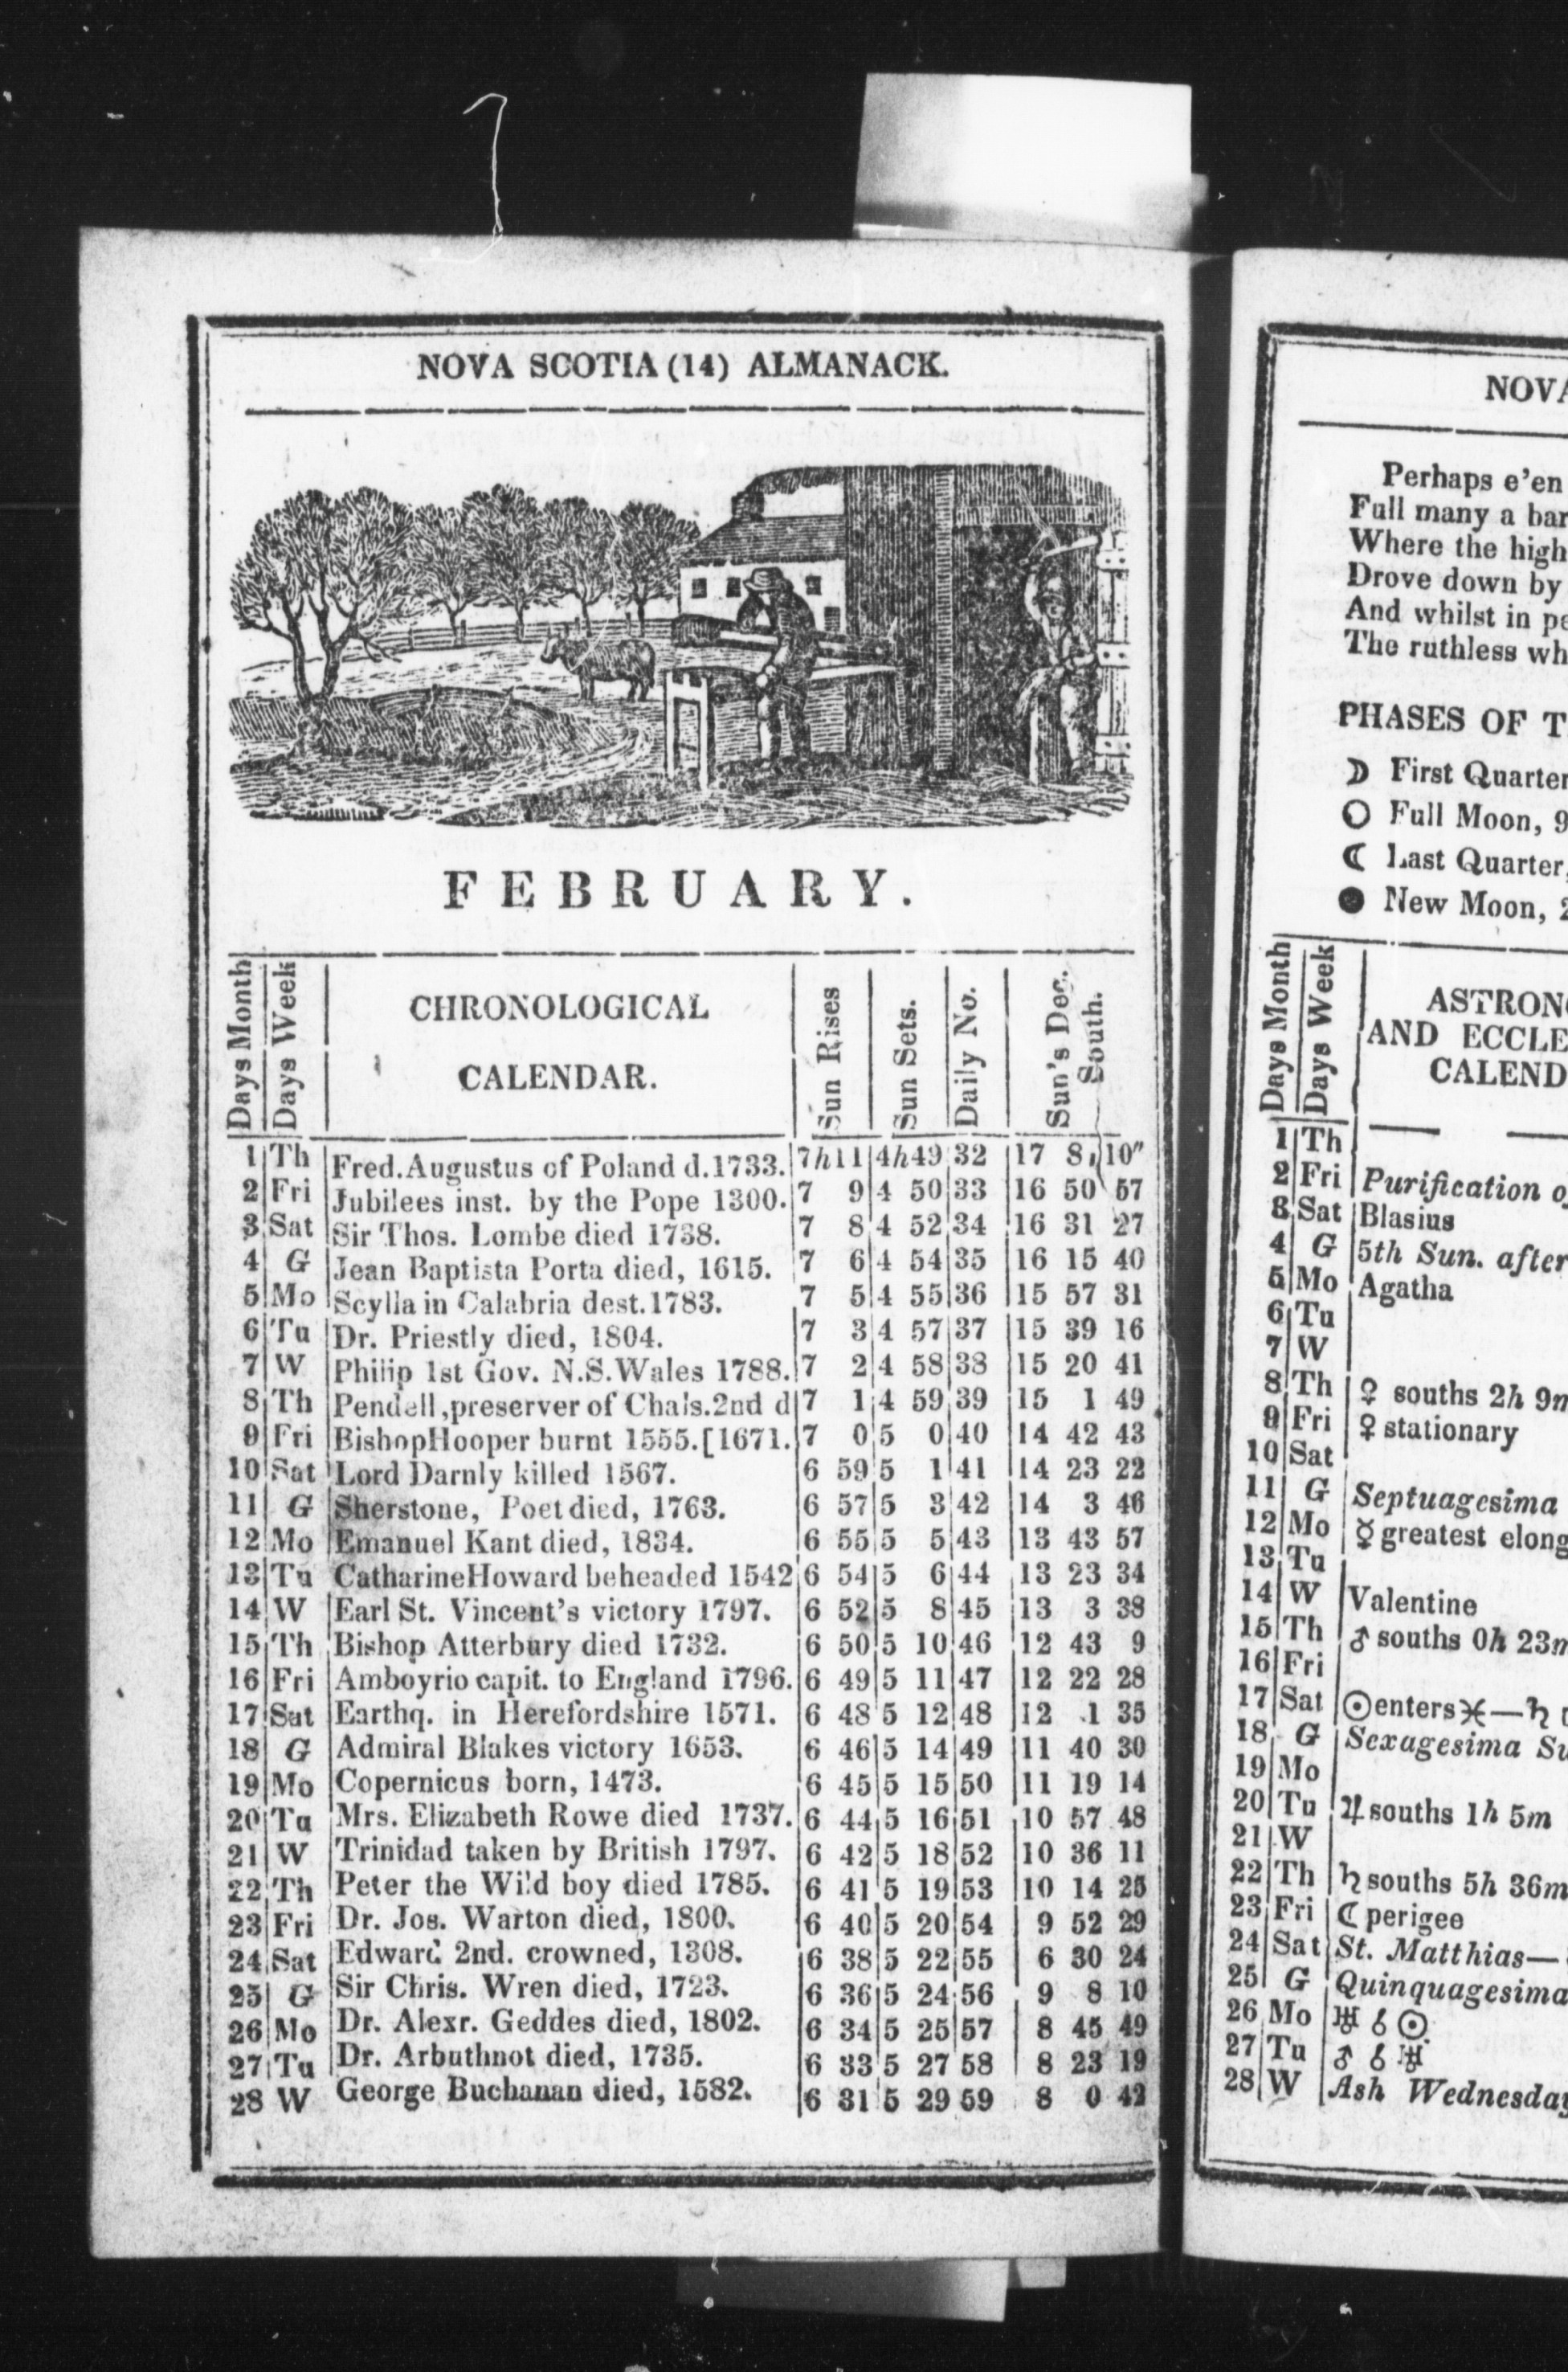 NOVA SCOTIA (14) ALMANACK.
FEBRUARY.
Days Month
Days Week
CHRONOLOGICAL
CALENDAR.
Sun Rises
Sun Sets.
Daily No.
Sun's Dec.
South.
1 Th Fred. Augustus of Poland d. 1733. 7h11 4h49 32 17 8, 10"
2 Fri Jubilees inst. by the Pope 1300. 7 9 4 50 33 16 50 57
3 Sat Sir Thos. Lombe died 1738. 7 8 4 52 34 16 31 27
4 G Jean Baptista Porta died, 1615. 7 6 4 54 35 16 15 40
5 Mo Scylla in Calabria dest. 1783. 7 5 4 55 36 15 57 31
6 Tu Dr. Priestly died, 1804. 7 3 4 57 37 15 39 16
7 W Philip 1st Gov. N.S. Wales 1788. 7 2 4 58 38 15 20 41
8 Th Pendell, preserver of Chals. 2nd d 7 1 4 59 39 15 1 49
9 Fri Bishop Hooper burnt 1555. [1671. 7 0 5 0 40 14 42 43
10 Sat Lord Darnly killed 1567. 6 59 5 1 41 14 23 22
11 G Sherstone, Poet died, 1763. 6 57 5 3 42 14 3 46
12 Mo Emanuel Kant died, 1834. 6 55 5 5 43 13 43 57
13 Tu Catharine Howard beheaded 1542 6 54 5 6 44 13 23 34
14 W Earl St. Vincent's victory 1797. 6 52 5 8 45 13 3 38
15 Th Bishop Atterbury died 1732. 6 50 5 10 46 12 43 9
16 Fri Amboyrio capit. to England 1796. 6 49 5 11 47 12 22 28
17 Sat Earthq. in Herefordshire 1571. 6 48 5 12 48 12 1 35
18 G Admiral Blakes victory 1653. 6 46 5 14 49 11 40 30
19 Mo Copernicus born, 1473. 6 45 5 15 50 11 19 14
20 Tu Mrs. Elizabeth Rowe died 1737. 6 44 5 16 51 10 57 48
21 W Trinidad taken by British 1797. 6 42 5 18 52 10 36 11
22 Th Peter the Wild boy died 1785. 6 41 5 19 53 10 14 25
23 Fri Dr. Jos. Warton died, 1800. 6 40 5 20 54 9 52 29
24 Sat Edward 2nd. crowned, 1308. 6 38 5 22 55 6 30 24
25 G Sir Chris. Wren died, 1723. 6 36 5 24 56 9 8 10
26 Mo Dr. Alexr. Geddes died, 1802. 6 34 5 25 57 8 45 49
27 Tu Dr. Arbuthnot died, 1735. 6 33 5 27 58 8 23 19
28 W George Buchanan died, 1582. 6 31 5 29 59 8 0 42
NOVA
Perhaps e'en
Full many a bar
Where the high
Drove down by
And whilst in pe
The ruthless wh
PHASES OF T
☽ First Quarter
○ Full Moon, 9
☾ Last Quarter,
● New Moon, 2
Days Month
Days Week
ASTRONO
AND ECCLE
CALEND
1 Th
2 Fri Purification o
3 Sat Blasius
4 G 5th Sun. after
5 Mo Agatha
6 Tu
7 W
8 Th ♀ souths 2h 9m
9 Fri ♀ stationary
10 Sat
11 G Septuagesima
12 Mo ☿ greatest elong
13 Tu
14 W Valentine
15 Th ♂ souths 0h 23m
16 Fri
17 Sat ☉ enters ♓—♄
18 G Sexagesima Su
19 Mo
20 Tu ♃ souths 1h 5m
21 W
22 Th ♄ souths 5h 36m
23 Fri ☾ perigee
24 Sat St. Matthias—
25 G Quinquagesima
26 Mo ♅ ☌ ☉
27 Tu ♂ ☌ ♅
28 W Ash Wednesday